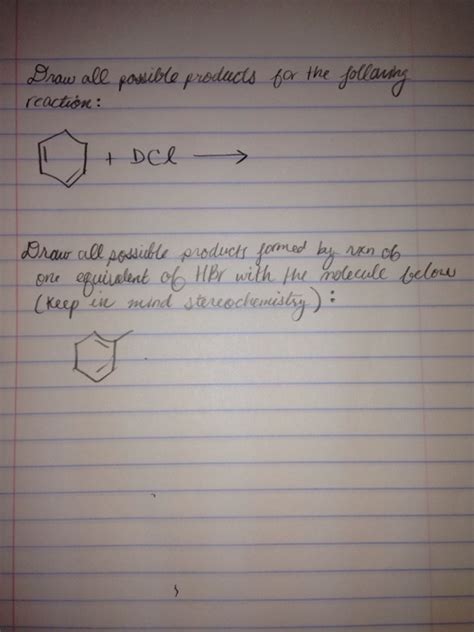 Draw all possible products for the following
reaction:
+ DCl
Draw all possible products formed by rxn of
one equivalent of HBr with the molecule below
(keep in mind stereochemistry):